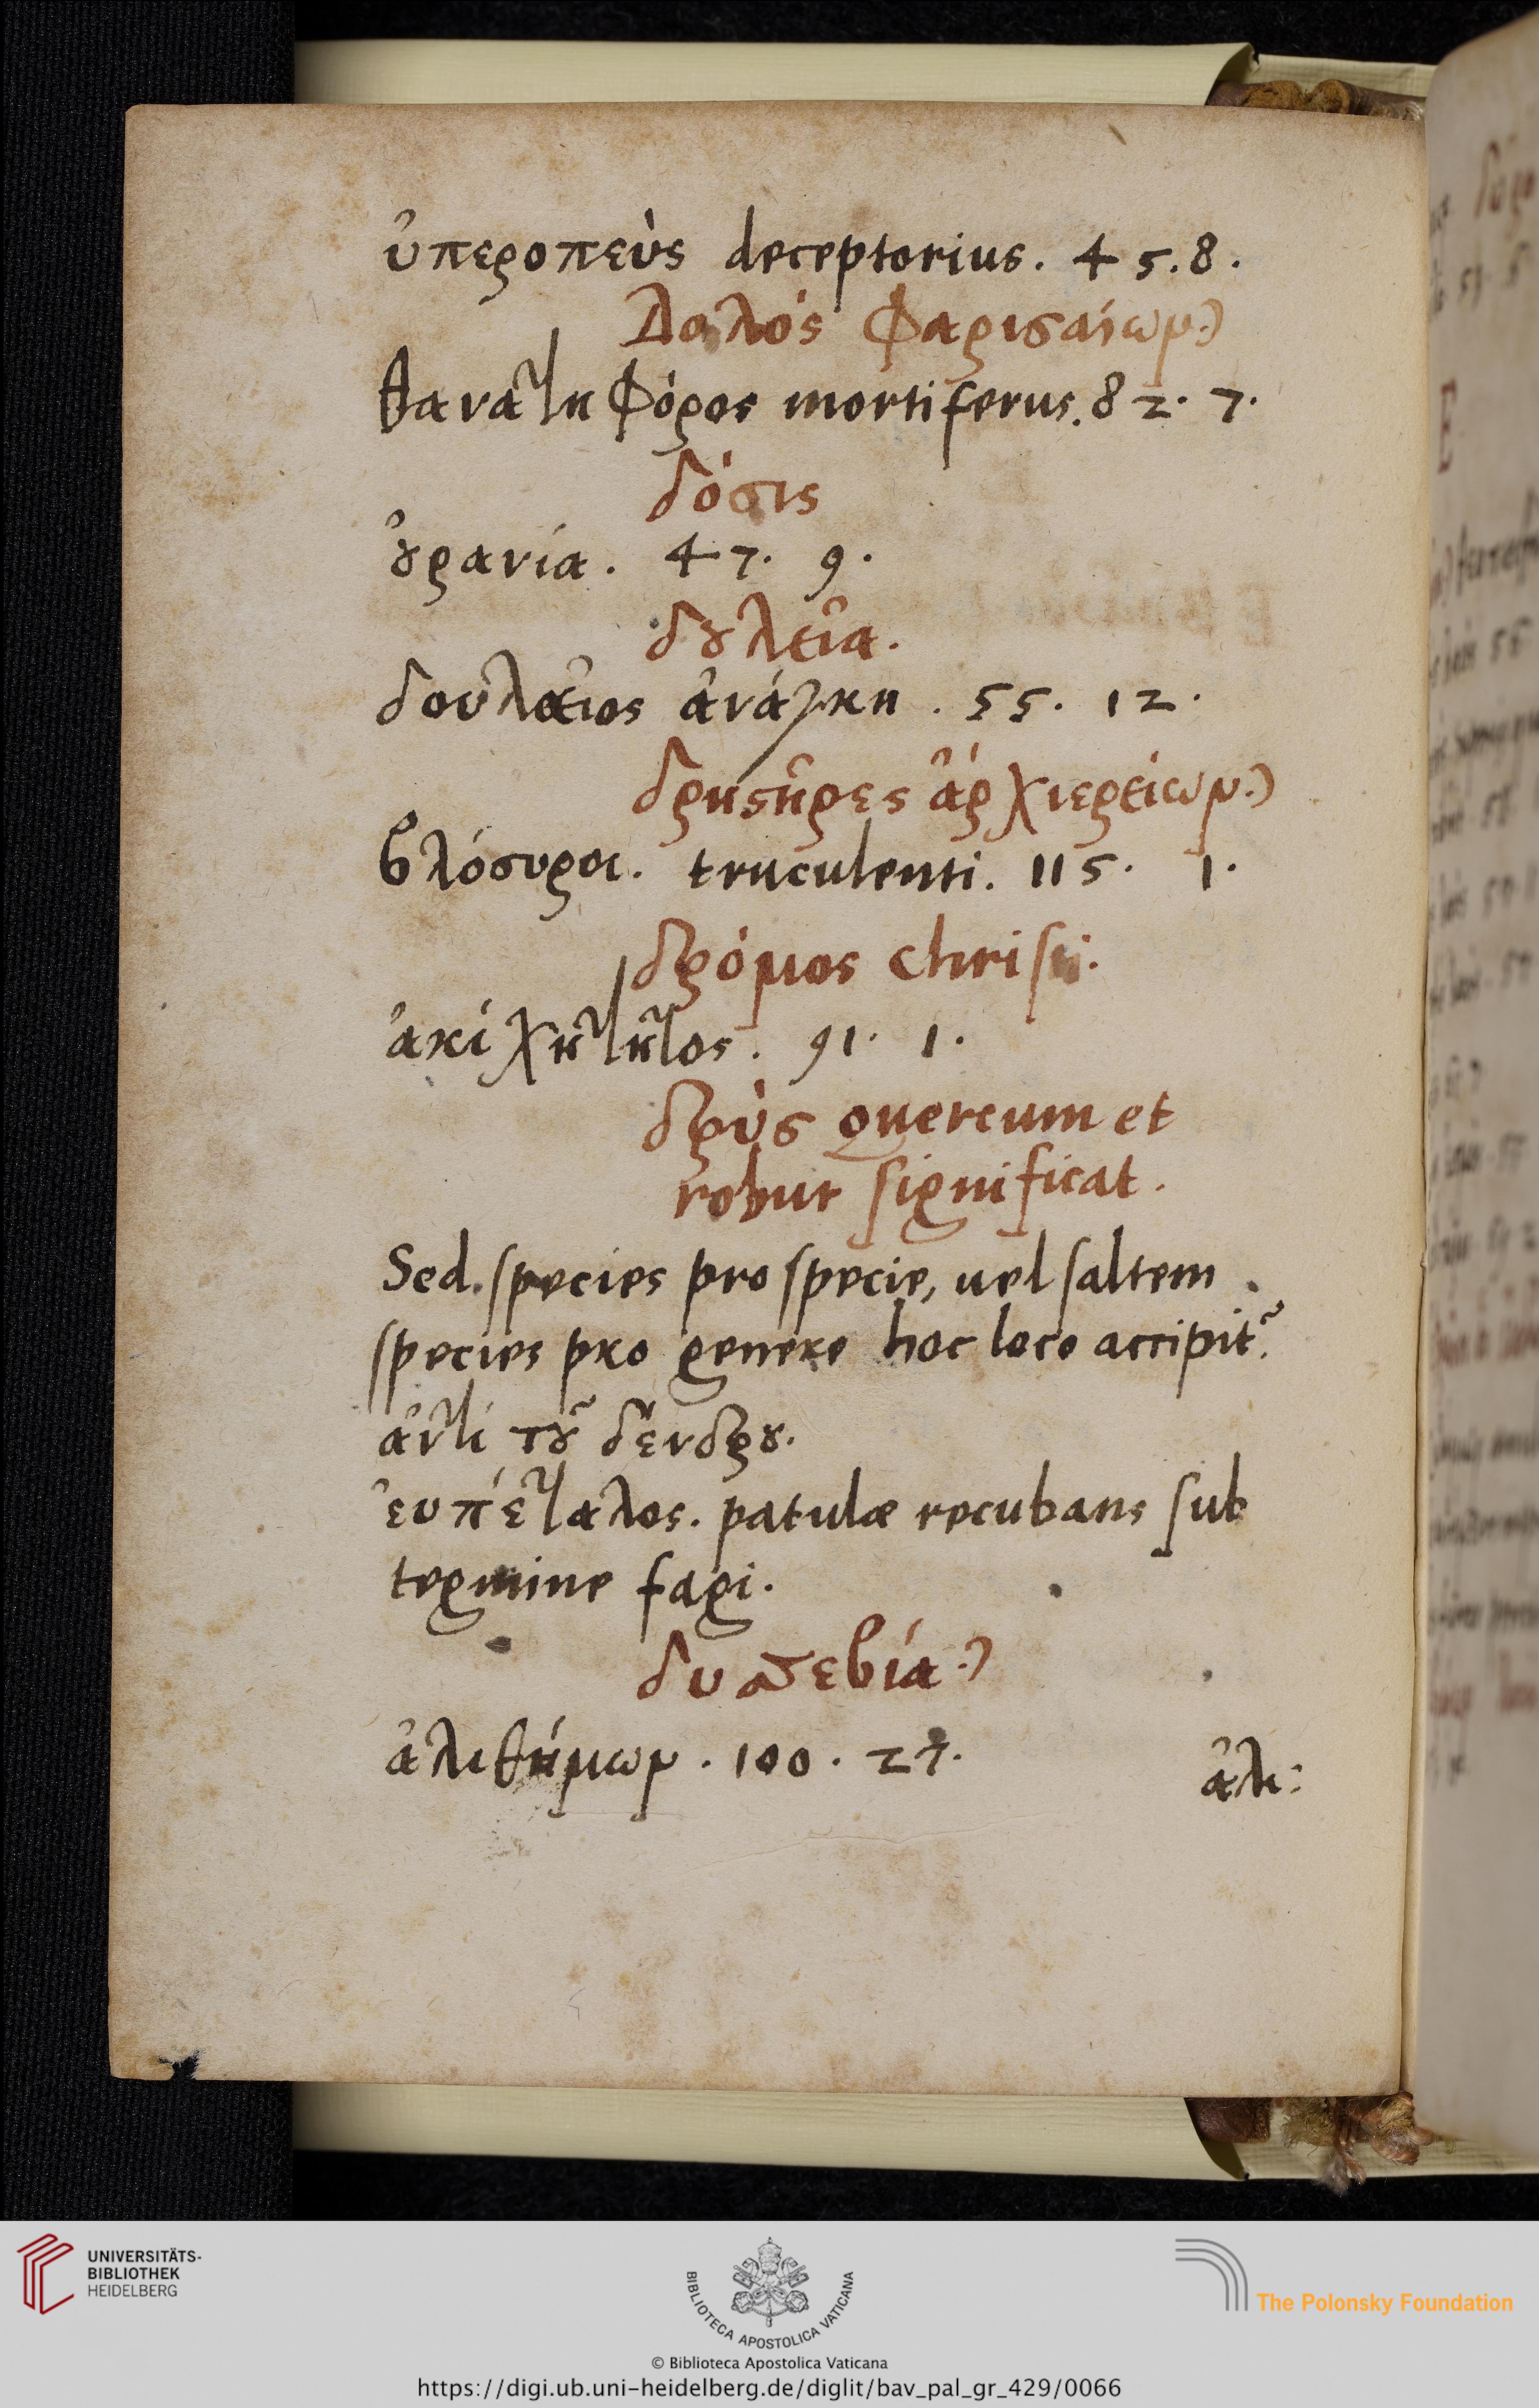 ὑπεροπεὺς deceptorius. 45.8.
Δολός Φαρισαίων.
θανατηφόρος mortiferus. 82. 7.
δόσις
ὀυρανία. 47. 9.
δουλεία.
δουλάιος ἀνάγκη. 55. 12.
δρηστῆρες ἀρχιερείων.
βλόσυροι. truculenti. 115. 1.
δρόμος christi.
ἀκίχητητος. 91. 1.
δρὺς quercum et
robur significat.
Sed. species pro specie, uel saltem
species pro genere hoc loco accipit᷑.
ἀντὶ τοῦ δένδρου.
ἐυπέταλος. patulæ recubans sub
tegmine fagi.
δυσσεβία.
ἀλιθήμων. 100. 27.
ἀλι:
UNIVERSITÄTS-
BIBLIOTHEK
HEIDELBERG
BIBLIOTECA APOSTOLICA VATICANA
The Polonsky Foundation
© Biblioteca Apostolica Vaticana
https://digi.ub.uni-heidelberg.de/diglit/bav_pal_gr_429/0066